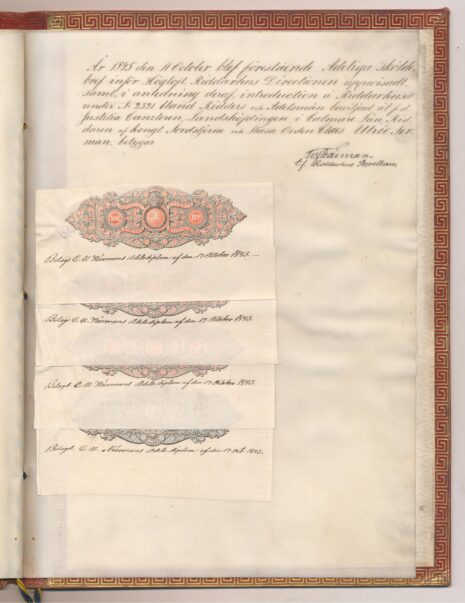 År 1845 den 11 October blef förestående Adeliga Sköldebref inför Högloft. Riddarhus Directionen uppwisadt
samt, i anledning deraf, introduction å Riddarhuset
under N. 2321 bland Ridders och Adelsmän beviljad åt f.d.
Justitie Canzleren, Landshöfdingen i Calmar Län, Riddaren af Kongl. Nordstjerne och Wasa Orden Claes Ulric Nerman, betygar
Riddarhus Secreterare
100 Rdr
Belagd C. U. Nermans Adelsdiplom af den 17 October 1843.
Belagd C. U. Nermans Adels diplom af den 17 October 1843.
Belagd C. U. Nermans Adels diplom af den 17 October 1843.
Belagd C. U. Nermans Adels diplom af den 17 Oct. 1843.